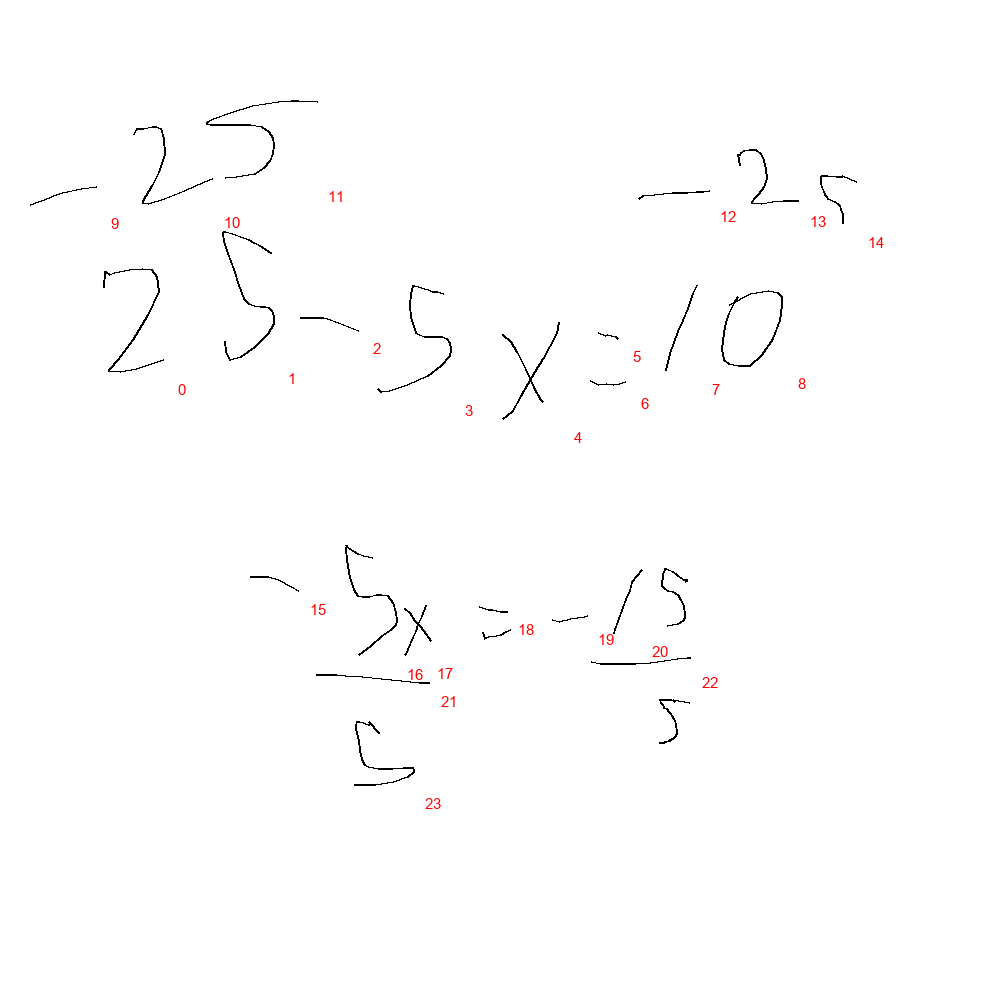 -25 -25
9 10 11 12 13 14
25-5x=10
0 1 2 3 4 5 6 7 8
-5x=-15
15 16 17 18 19 20
21 22
5 5
23